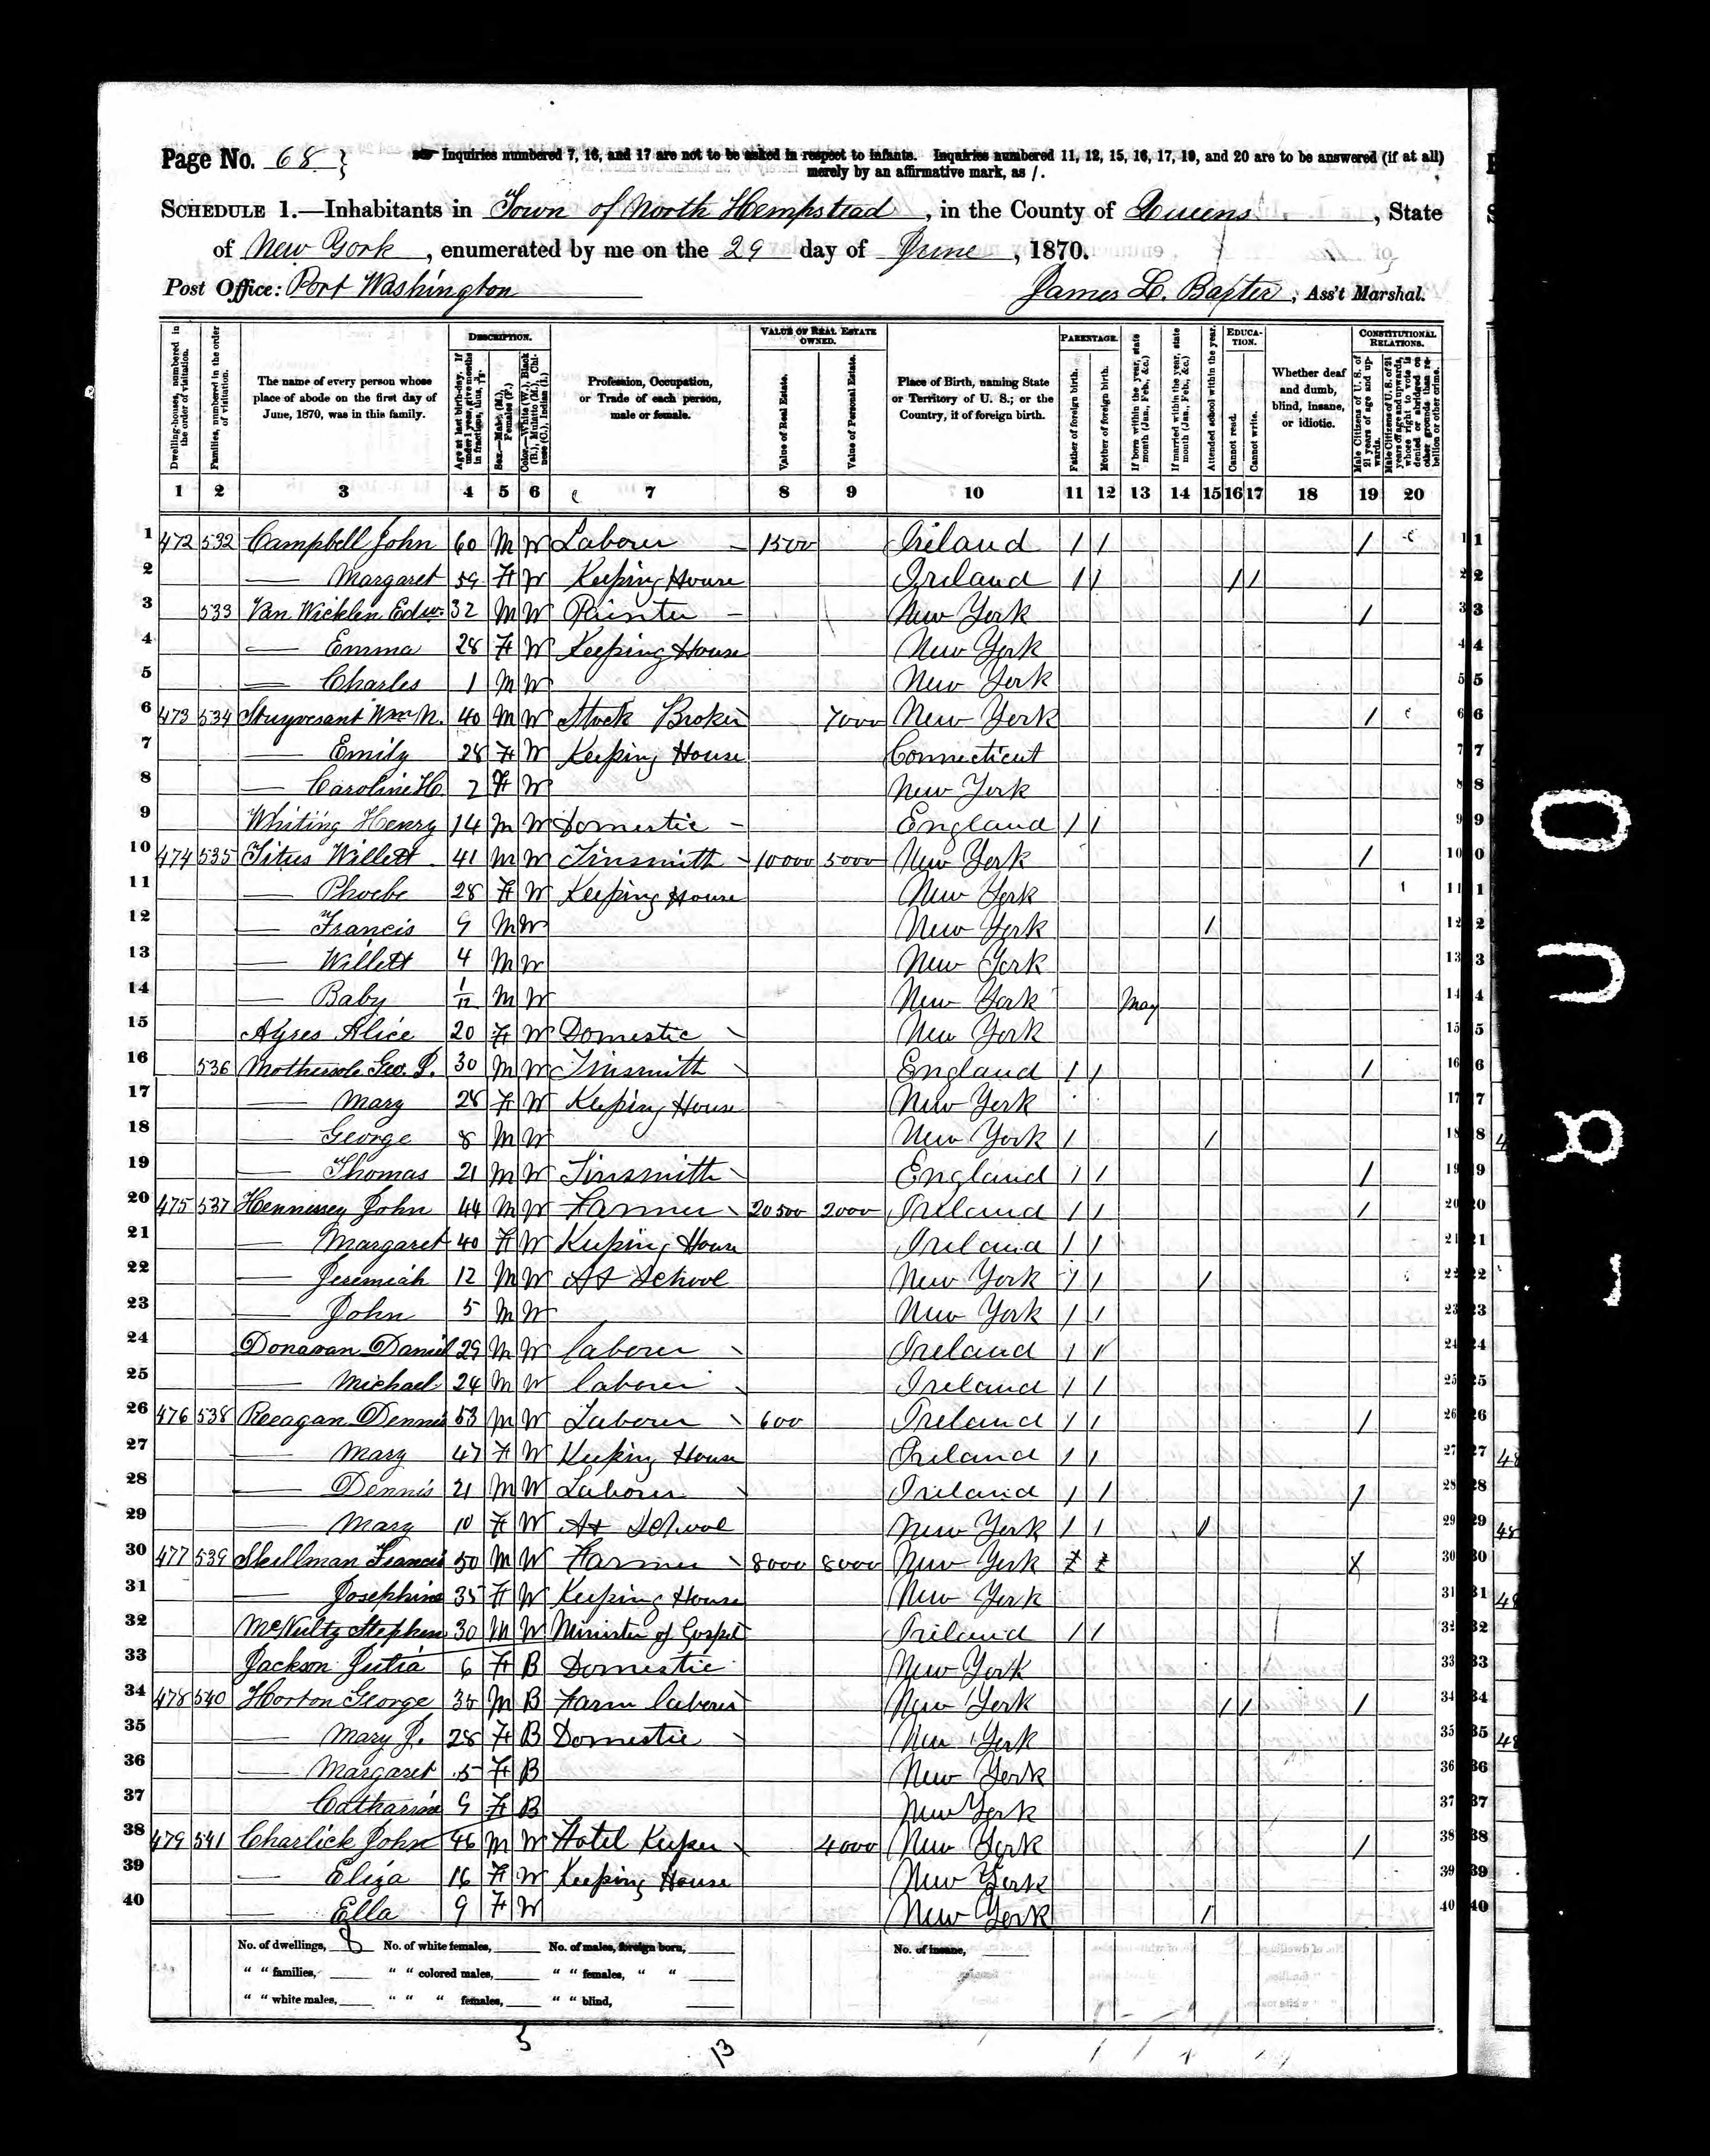 Page No. 68
Inquiries numbered 7, 16, and 17 are not to be asked in respect to infants. Inquiries numbered 11, 12, 15, 16, 17, 19, and 20 are to be answered (if at all)
merely by an affirmative mark, as /.
SCHEDULE 1.—Inhabitants in Town of North Hempstead, in the County of Queens, State
of New York, enumerated by me on the 29 day of June, 1870.
Post Office: Port Washington James L. Baxter, Ass't Marshal.
Dwelling-houses, numbered in the order of visitation.
Families, numbered in the order of visitation.
The name of every person whose place of abode on the first day of June, 1870, was in this family.
DESCRIPTION.
Age at last birth-day. If under 1 year, give months in fractions, thus,
Sex.—Males (M.), Females (F.)
Color.—White (W.), Black (B.), Mulatto (M.), Chinese (C.), Indian (I.)
Profession, Occupation, or Trade of each person, male or female.
VALUE OF REAL ESTATE OWNED.
Value of Real Estate.
Value of Personal Estate.
Place of Birth, naming State or Territory of U. S.; or the Country, if of foreign birth.
PARENTAGE.
Father of foreign birth.
Mother of foreign birth.
If born within the year, state month (Jan., Feb., &c.)
If married within the year, state month (Jan., Feb., &c.)
Attended school within the year.
EDUCATION.
Cannot read.
Cannot write.
Whether deaf and dumb, blind, insane, or idiotic.
CONSTITUTIONAL RELATIONS.
Male Citizens of U. S. of 21 years of age and upwards.
Male Citizens of U. S. of 21 years of age and upwards, whose right to vote is denied or abridged on other grounds than rebellion or other crime.
1 2 3 4 5 6 7 8 9 10 11 12 13 14 15 16 17 18 19 20
1 472 532 Campbell John 60 M W Laborer 1500 Ireland / / / 1
2 — Margaret 59 F W Keeping House Ireland / / / / 2
3 533 Van Wicklen Edw. 32 M W Painter New York / 3
4 — Emma 28 F W Keeping House New York 4
5 — Charles 1 M W New York 5
6 473 534 Stuyvesant Wm N. 40 M W Stock Broker 7000 New York / 6
7 — Emily 28 F W Keeping House Connecticut 7
8 — Caroline H. 2 F W New York 8
9 Whiting Henry 14 M W Domestic England / / 9
10 474 535 Titus Willett 41 M W Tinsmith 10000 5000 New York / 10
11 — Phoebe 28 F W Keeping House New York 11
12 — Francis 9 M W New York / 12
13 — Willett 4 M W New York 13
14 — Baby 1/12 M W New York May 14
15 Ayres Alice 20 F W Domestic New York 15
16 536 Geo. P. 30 M W Tinsmith England / / / 16
17 — Mary 28 F W Keeping House New York 17
18 — George 8 M W New York / / 18
19 — Thomas 21 M W Tinsmith England / / / 19
20 475 537 Hennessey John 44 M W Farmer 20500 2000 Ireland / / / 20
21 — Margaret 40 F W Keeping House Ireland / / 21
22 — Jeremiah 12 M W At School New York / / / 22
23 — John 5 M W New York / / 23
24 Donavan Daniel 29 M W laborer Ireland / / 24
25 — Michael 24 M W laborer Ireland / / 25
26 476 538 Reeagan Dennis 53 M W Laborer 600 Ireland / / / 26
27 — Mary 47 F W Keeping House Ireland / / 27
28 — Dennis 21 M W Laborer Ireland / / / 28
29 — Mary 10 F W At School New York / / / 29
30 477 539 Skillman Francis 50 M W Farmer 8000 8000 New York 30
31 — Josephine 35 F W Keeping House New York 31
32 McNulty Stephen 30 M W Minister of Gospel Ireland / / 32
33 Jackson 6 F B Domestic New York 33
34 478 540 Horton George 35 M B Farm laborer New York / / / 34
35 — Mary J. 28 F B Domestic New York 35
36 — Margaret 5 F B New York 36
37 Catharine 9 F B New York 37
38 479 541 Charlick John 46 M W Hotel Keeper 4000 New York / 38
39 — Eliza 16 F W Keeping House New York 39
40 — Ella 9 F W New York / 40
No. of dwellings, 8 No. of white females, No. of males, foreign born, No. of insane,
" " families, " " colored males, " " females, " "
" " white males, " " " females, " " blind,
5 13